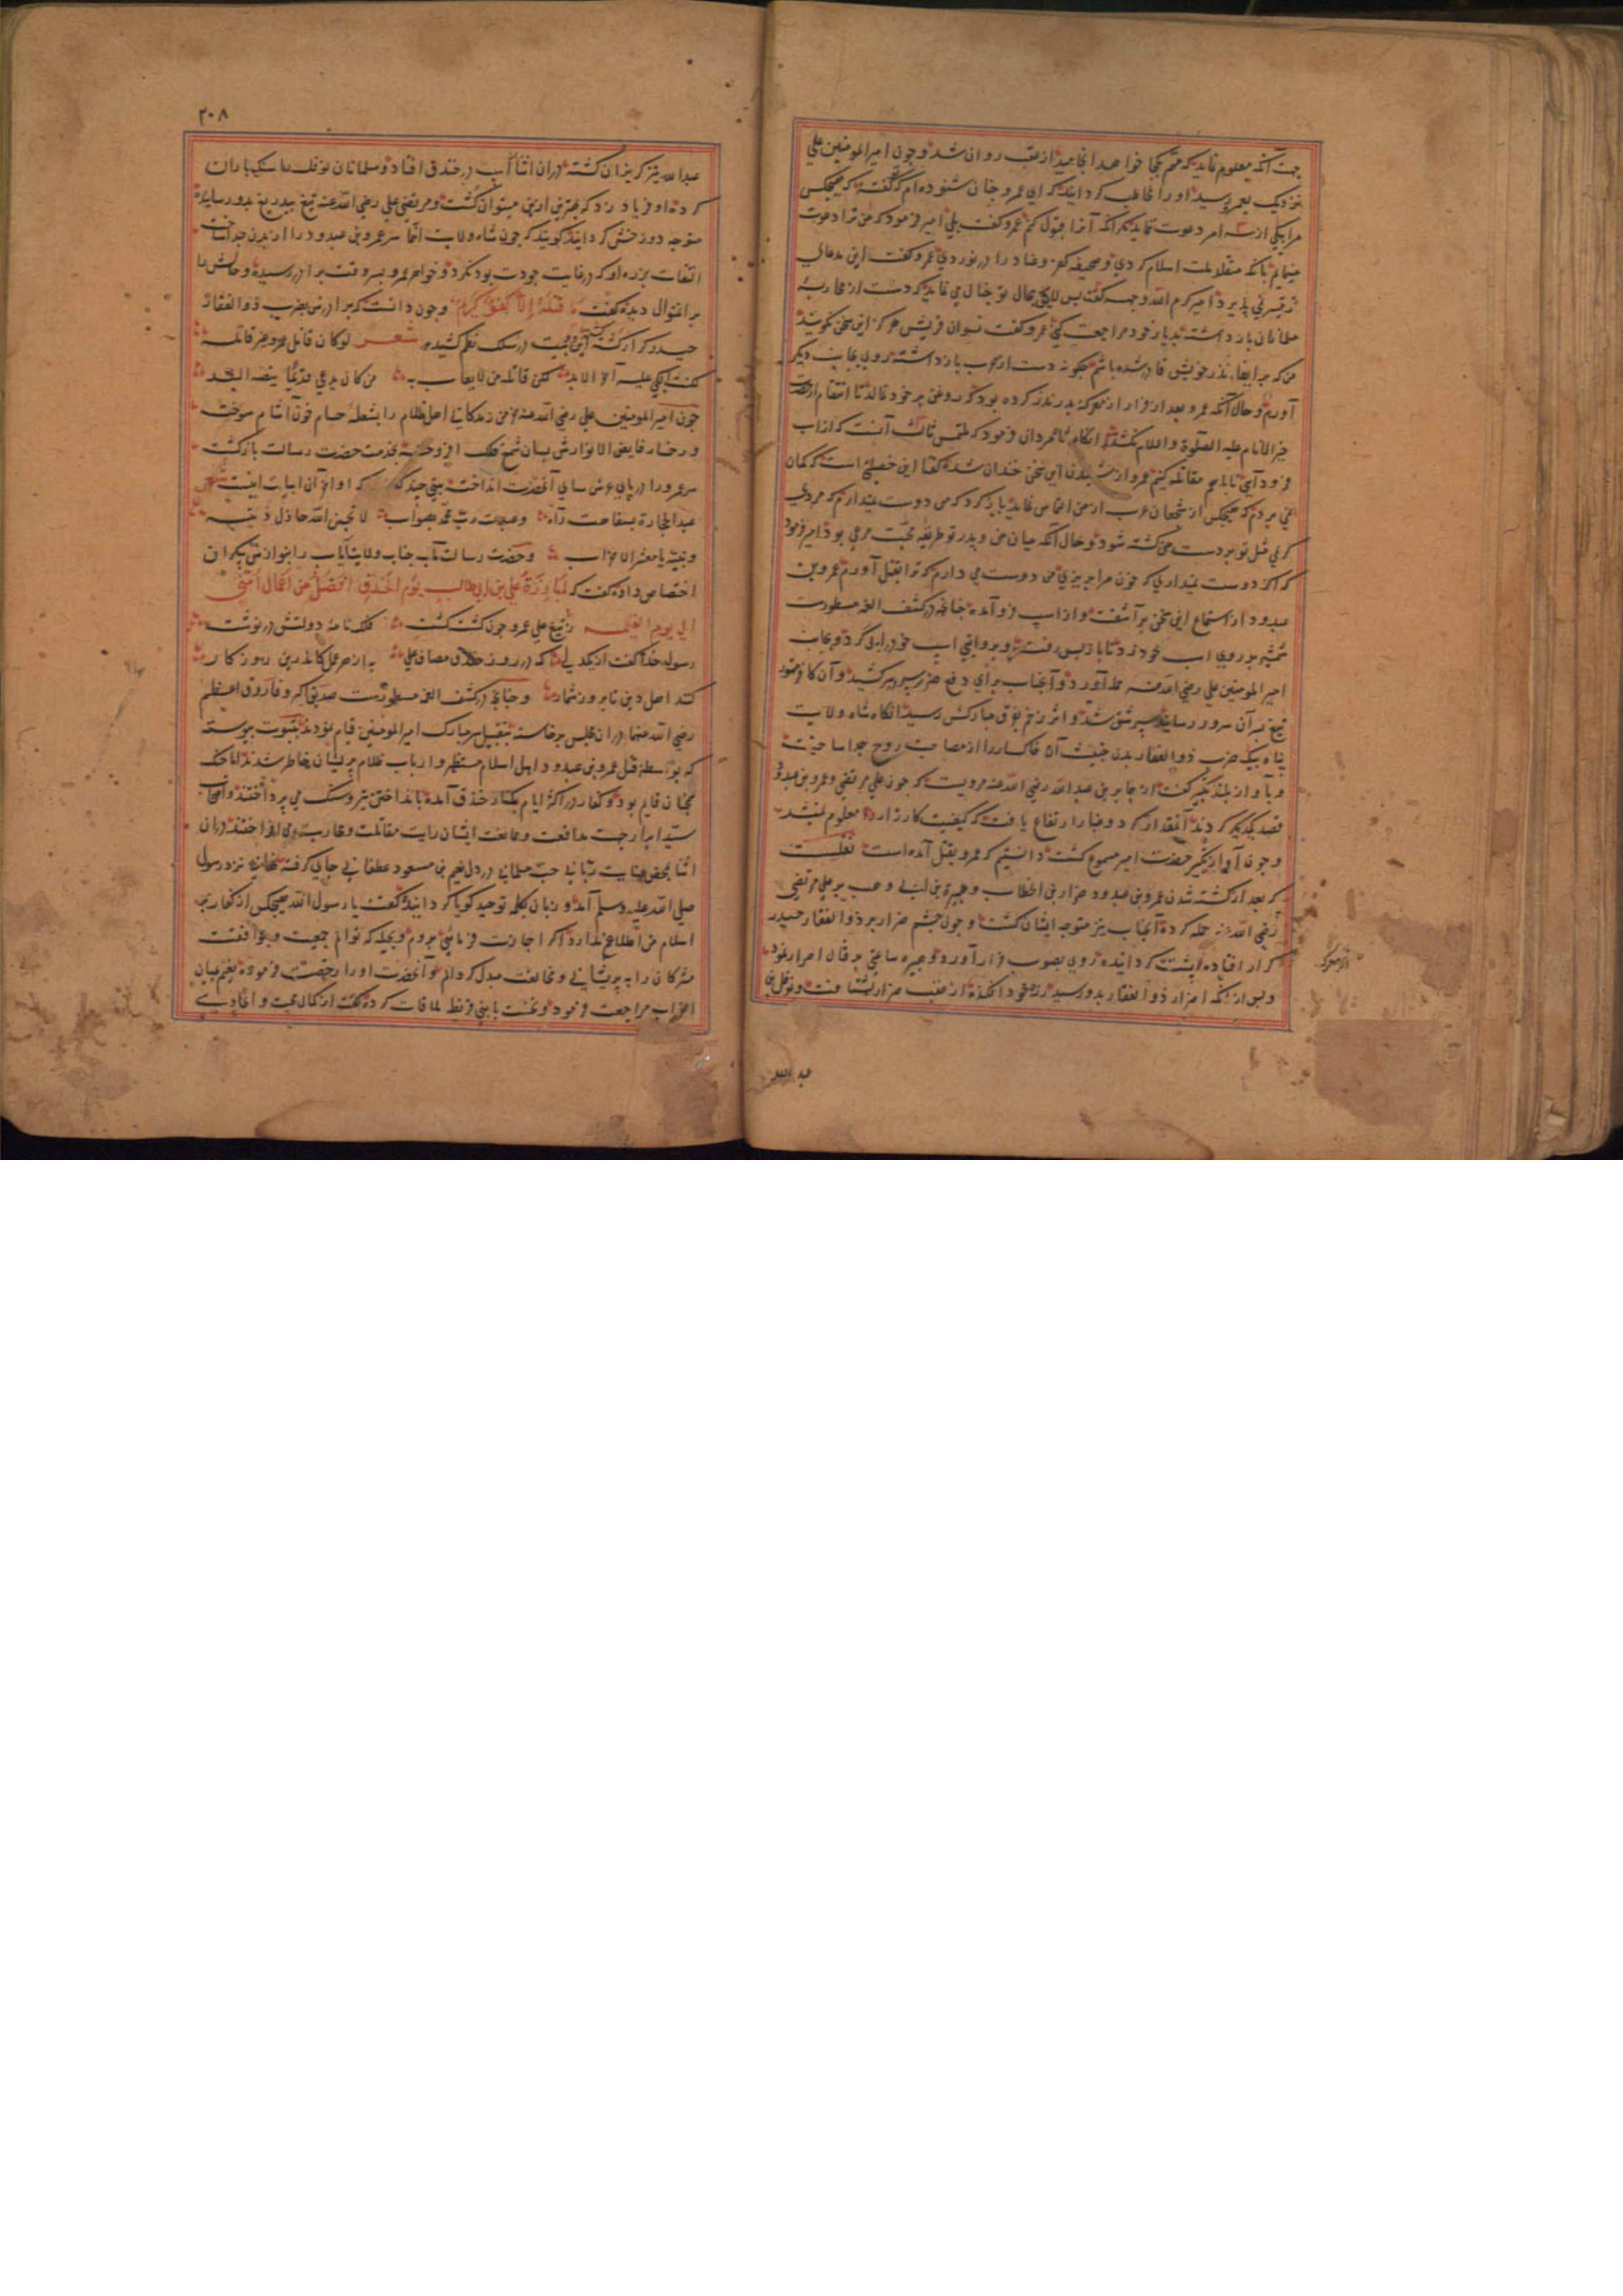 جهت آنکه معلوم نماید که مهم بکجا خواهد انجامید از عقب روان شد و چون امیر المومنین علی
نزدیک بعمرو رسید او را مخاطب گردانید که ای عمرو چنان شنوده‌ام که گفتهٔ که هیچکس
مرا بیکی از سه امر دعوت ننماید مگر آنکه آنرا قبول کنم عمرو گفت بلی امیر فرمود که من ترا دعوت
مینمایم بآنکه متقلد ملت اسلام گردی و صحیفه کفر وعناد را در نوردی عمرو گفت این مدعای
پذیرد امیر کرم الله وجهه گفت پس لایق بحال تو چنان می نماید که دست از محاربهٔ
مسلمانان باز داشته بدیار خود مراجعت کنی عمرو گفت نسوان قریش هرگز این سخن نگویند
من که بر ایفاء نذر خویش قادر شده باشم چگونه دست از حرب باز داشته روی بجانب دیگر
آورم و حال آنکه عمرو بعد از فرار از معرکه بدر نذر کرده بود که روغن بر خود نمالد تا انتقام از حضرت
خیر الانام علیه الصلوة والسلام نکشد انگاه شاه مردان فرمود که ملتمس ثالث آنست که از اسب
فرود آیی تا باهم مقاتله کنیم عمرو از شنیدن این سخن خندان شده گفتا این خصلتی است که گمان
نمی بردم که هیچکس از شجعان عرب از من التماس نماید باز گرد که من دوست نمیدارم که مردی
کریمی مثل تو بر دست من کشته شود و حال آنکه میان من و پدر تو طریقه محبت مرعی بود امیر فرمود
که اگر دوست نمیداری که خون مرا بریزی من دوست می دارم که ترا بقتل آورم عمرو بن
عبدود از استماع این سخن بر آشفت و از اسپ فرود آمده چنانچه در کشف الغمه مسطورست
شمشیر بر روی اسب خود زد تا باز پس رفت و بروایتی اسپ خود را پی کرد و بجانب
امیر المومنین علی رضی الله عنه حمله آورد و آنجناب برای دفع ضرر سپر در سر کشید و آن کافر
تیغ بر آن سرور رسانید سپر شق شد و اثر زخم بفرق مبارکش رسید انگاه شاه ولایت
پناه بیک ضرب ذو الفقار بدن خبیث آن خاکسار را از مصاحبت روح جدا ساخت
و بآواز بلند تکبیر گفت از جابر بن عبد الله رضی الله عنه مرویست که چون علی مرتضی و عمرو بن عبدود
قصد یکدیگر کردند آنمقدار گرد و غبار ارتفاع یافت که کیفیت کارزار معلوم نمیشد
و چون آواز تکبیر حضرت امیر مسموع گشت دانستیم که عمرو بقتل آمده است نقلست
که بعد از کشته شدن عمرو بن عبدود ضرار بن الخطاب و هبیرة بن ابی وهب بر علی مرتضی
رضی الله عنه حمله کرده آنجناب نیز متوجه ایشان گشت و چون چشم ضرار بر ذو الفقار حیدر
کرار افتاد پشت گردانیده روی بصوب فرار آورد و هبیره ساعتی بر قتال اصرار نمود
و پس از آنکه اضرار ذو الفقار بدو رسید زره خود انگنده از عقب ضرار بشتافت و نوفل بن
عبد الله
۲۰۸
عبد الله نیز گریزان گشته در آن اثنا اسب در خندق افتاد و مسلمانان نوفل را سنگ باران
کرده او فریاد زد که بهتر ازین میتوان کشت و مرتضی علی رضی الله عنه تیغ بیدریغ بدو رسانیده
متوجه دوزخش گردانید گویند که چون شاه ولایت انتما سر عمرو بن عبدود را از بدن جدا ساخت
التفات بزره او که در غایت جودت بود نکرد و خواهر عمرو بسر وقت برادر رسیده و حالش را
بر آنمنوال دیده گفت ما قتله الا کفو کریم و چون دانست که برادرش بضرب ذو الفقار
حیدر کرار کشته گشته این دو بیت در سلک نظم کشید شعر لو کان قاتل عمرو غیر قاتله
لکنت ابکی علیه آخر الابد لکن قاتله من لا یعاب به من کان یدعی قدیما بیضة البلد
چون امیر المومنین علی رضی الله عنه خرمن زندگانی اهل ظلام را بشعله حسام خون آشام سوخت
و رخسار فایض الانوارش بسان شمع فلک افروخته بخدمت حضرت رسالت بازگشت
سر عمرو را در پای عرش سای آنحضرت انداخت بیتی چند گفت که اواخر آن ابیات اینست شعر
عبد الحجارة بسفاهت رآه و عبدت رب محمد بصواب لا تحسبن الله خاذل دینه
و نبیه یا معشر الاحزاب و حضرت رسالت مآب جناب ولایت‌مآب را بنوازش بیکران
اختصاص داده گفت که لمبارزة علی بن ابی طالب یوم الخندق افضل من اعمال امتی
الی یوم القیمه ز تیغ علی عمرو چون گشت کشت فلک نامهٔ دولتش در نوشت
رسول خدا گفت از یکدلی که در روز خندق مصاف علی به از هر عمل کاندرین روزگار
کنند اهل دین تا بروز شمار و چنانچه در کشف الغمه مسطورست صدیق اکبر و فاروق اعظم
رضی الله عنهما در آن مجلس برخاسته بتقبیل سر مبارک امیر المومنین قیام نمودند بثبوت پیوسته
که بواسطهٔ قتل عمرو بن عبدود اهل اسلام مستظهر و ارباب ظلام پریشان خاطر شدند اما جنگ
همچنان قایم بود و کفار در اکثر ایام بکنار خندق آمده بانداختن تیر و سنگ می پرداختند و اصحاب
سید ابرار جهت مدافعت و ممانعت ایشان رایت مقاتلت و محاربت می افراختند در آن
اثنا بمحض عنایت ربانی حب مسلمانی در دل نعیم بن مسعود غطفانی جای گرفته نزد رسول
صلی الله علیه وسلم آمد و زبان بکلمه توحید گویا گردانید و گفت یا رسول الله هیچکس از کفار بر
اسلام من اطلاع ندارد اگر اجازت فرمائی بروم و بحیله که توانم جمعیت و موافقت
مشرکان را به پریشانی و مخالفت مبدل گردانم و آنحضرت او را رخصت فرموده نعیم بمیان
احزاب مراجعت فرمود و نخست با بنی قریظه ملاقات کرده گفت از کمال محبت و اتحادی